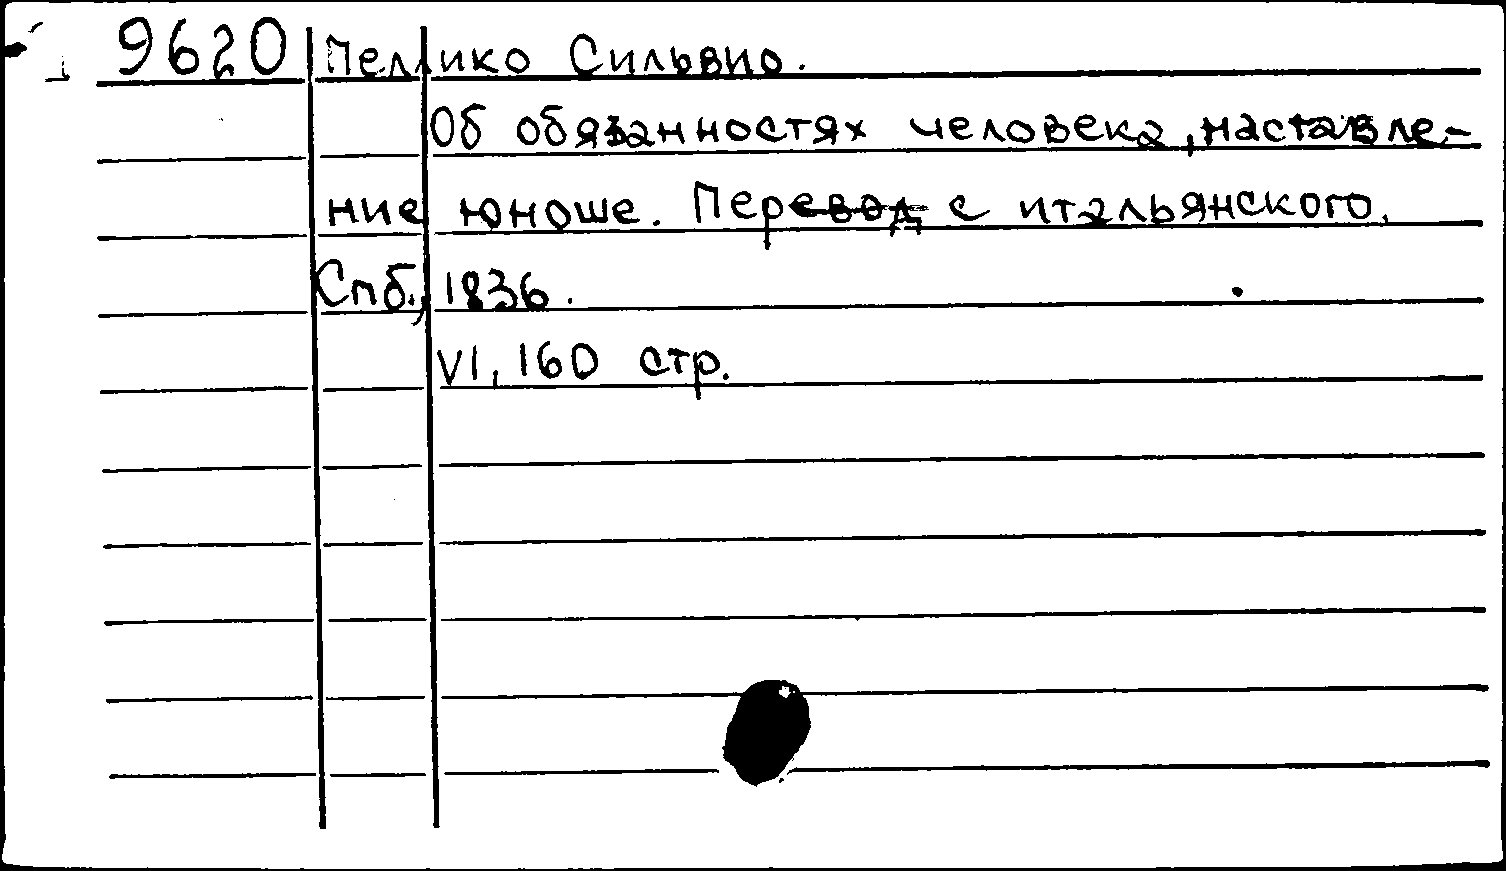 9620 Пеллико Сильвио.
Об обязанностях человека, наставле-
ние юноше. Перевод с итальянского.
Спб., 1836.
VI, 160 стр.